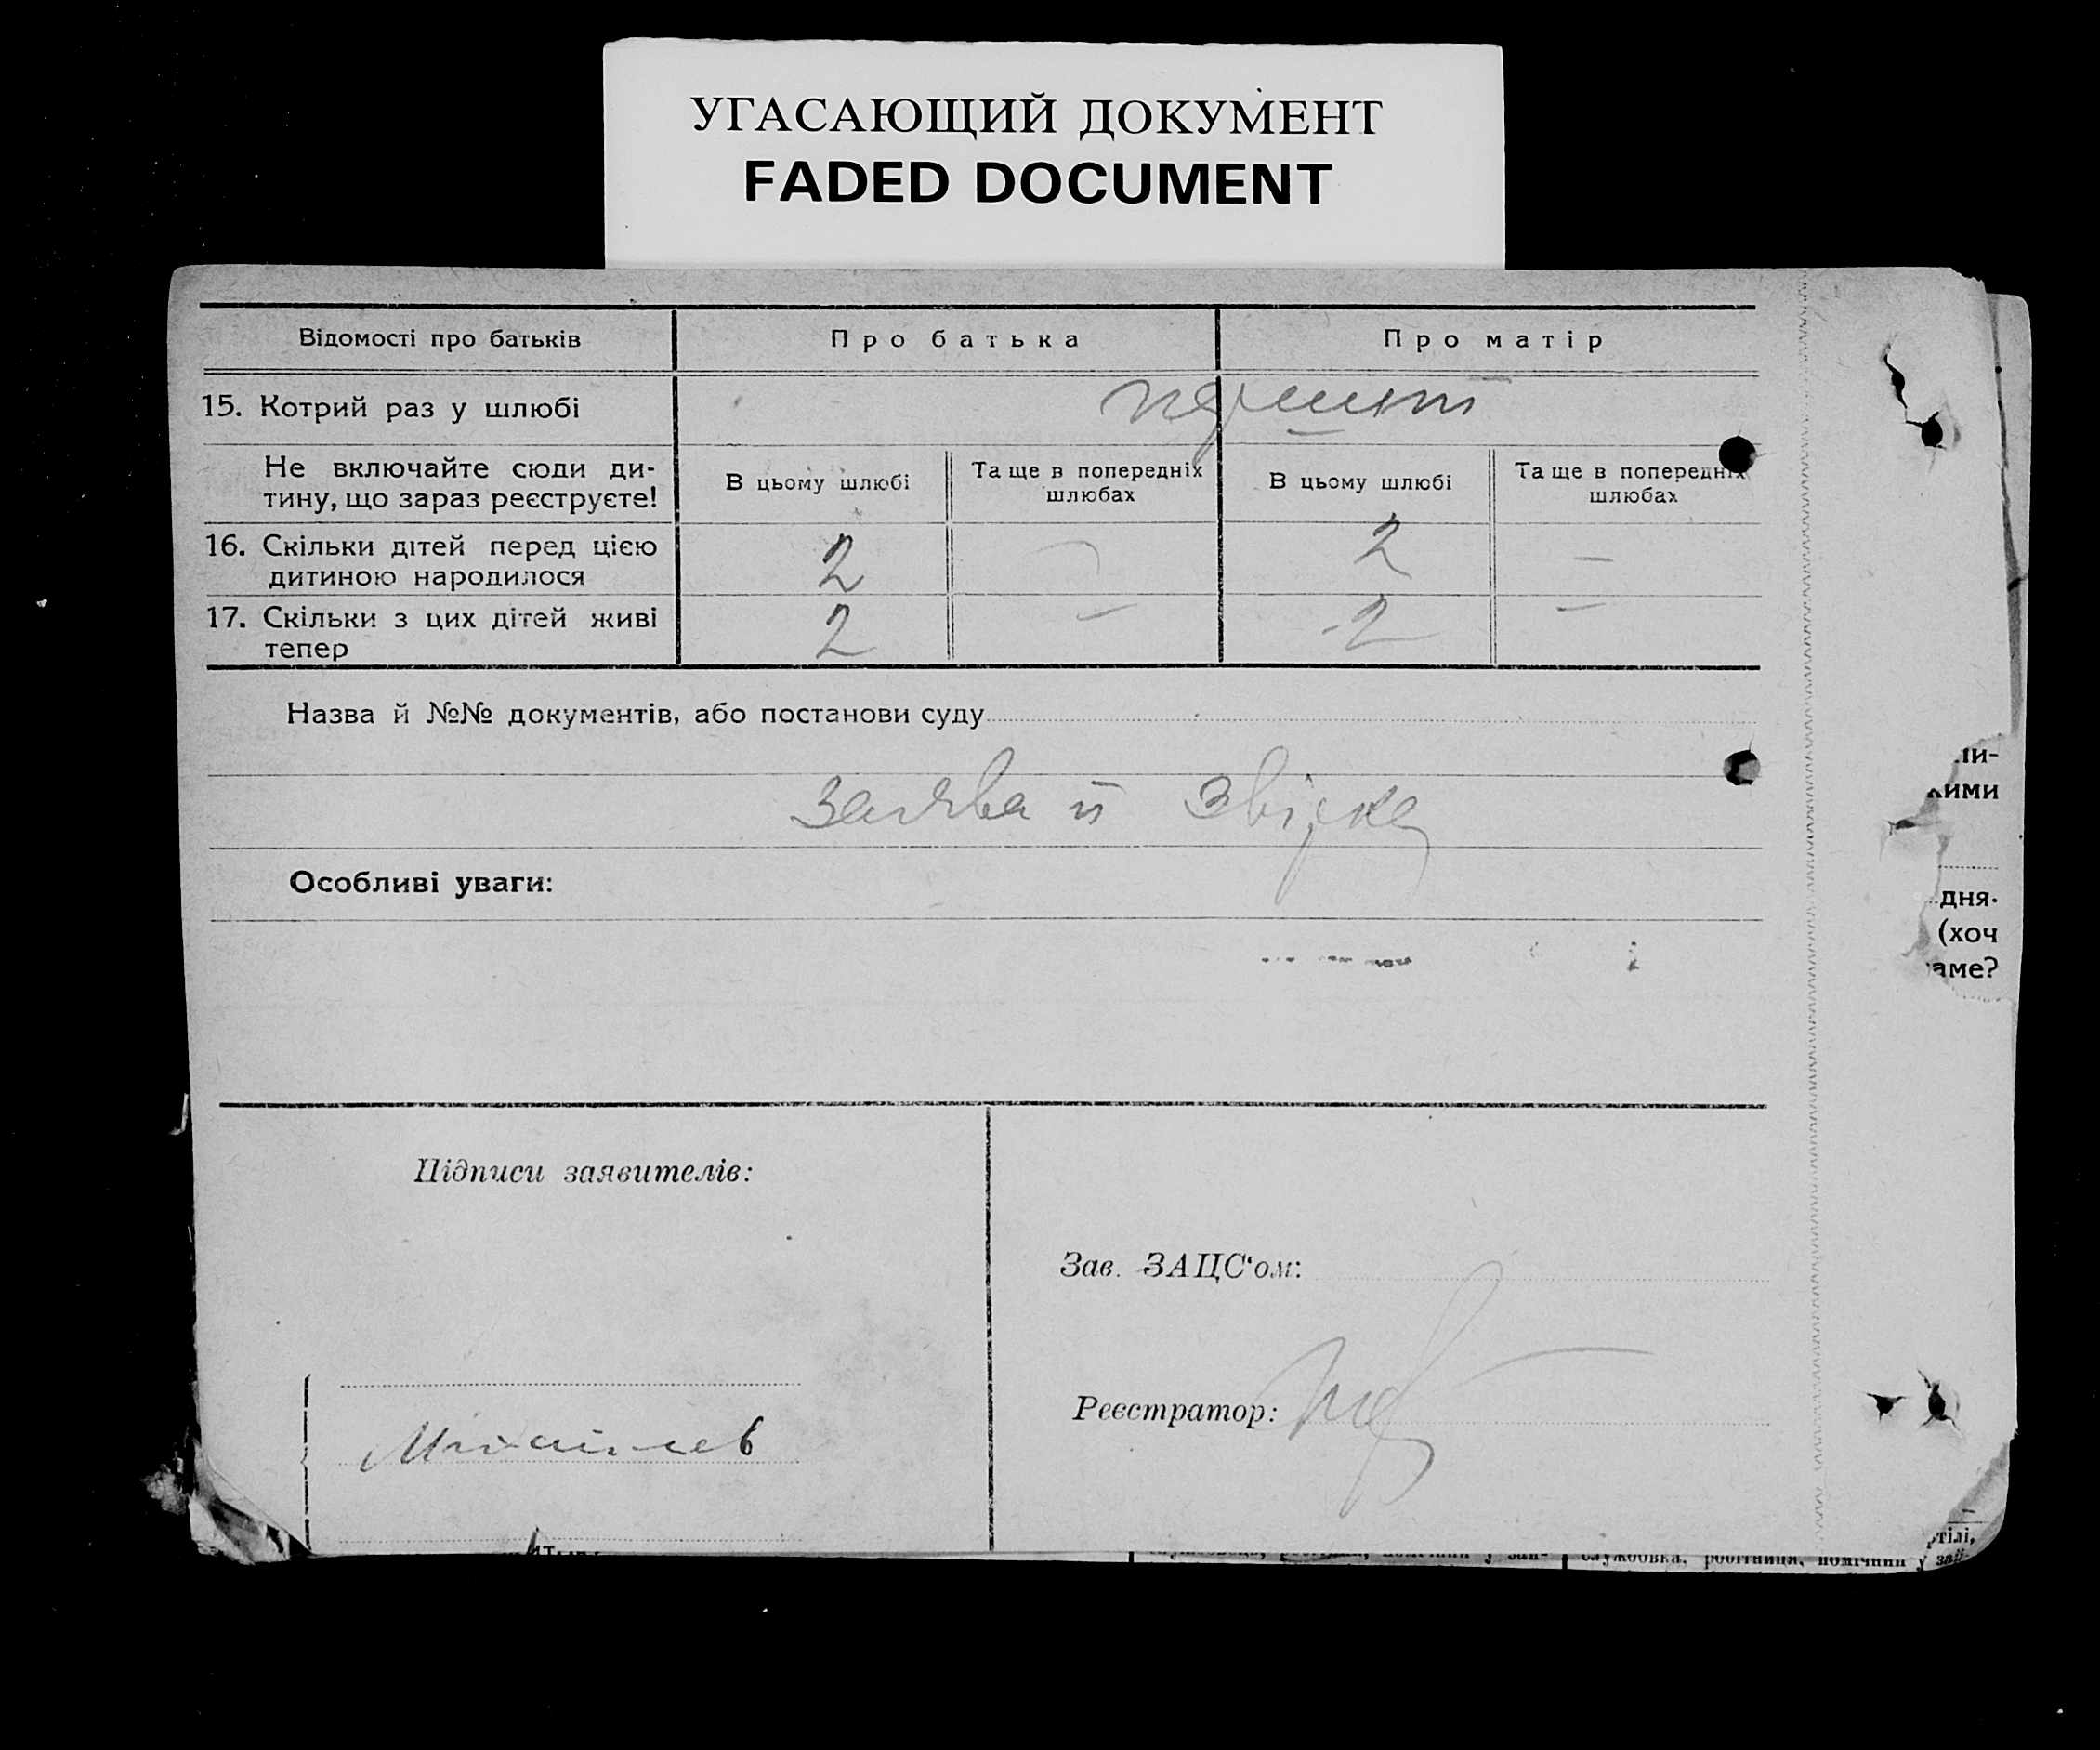 УГАСАЮЩИЙ ДОКУМЕНТ
FADED DOCUMENT
Відомості про батьків
Про батька
Про матір
15. Котрий раз у шлюбі
Не включайте сюди ди-
тину, що зараз реєструєте!
В цьому шлюбі
Та ще в попередніх
шлюбах
В цьому шлюбі
Та ще в попередніх
шлюбах
16. Скільки дітей перед цією
дитиною народилося
2
—
2
—
17. Скільки з цих дітей живі
тепер
2
—
2
—
Назва й №№ документів, або постанови суду
заява й
Особливі уваги:
Підписи заявителів:
Зав. ЗАЦС'ом:
Реєстратор:
кими
дня.
(хоч
аме?
тілі,
службовка, робітниця, помічниц у зай-